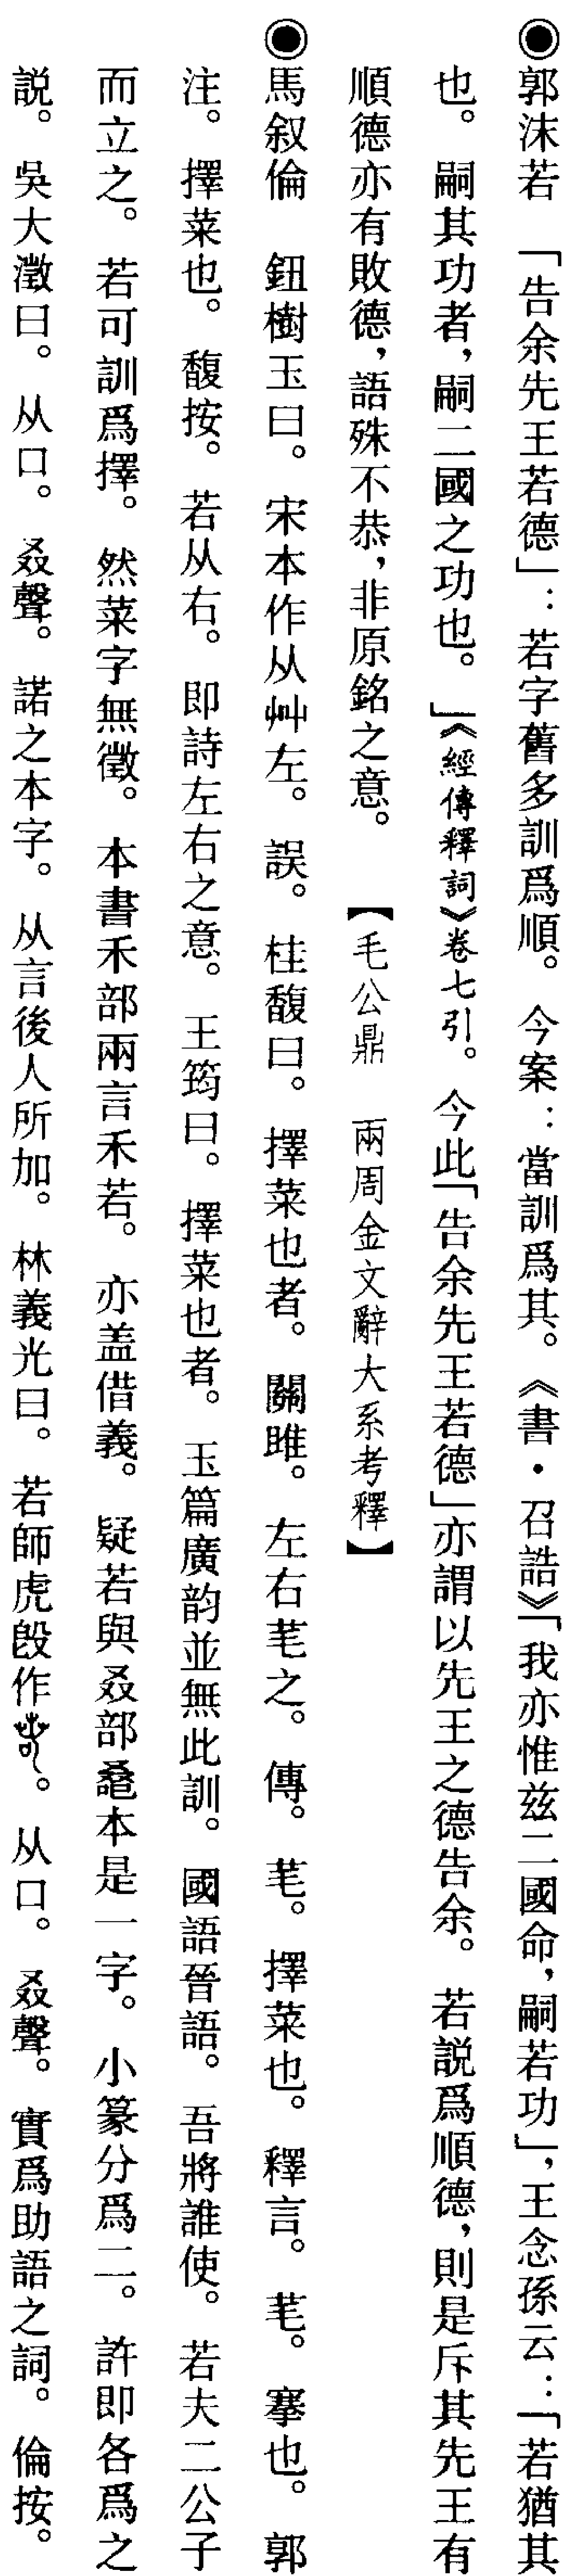 ◉郭沫若　「告余先王若德」：若字舊多訓爲順。今案：當訓爲其。《書·召誥》「我亦惟兹二國命，嗣若功」，王念孫云：「若猶其
也。嗣其功者，嗣二國之功也。」《經傳釋詞》卷七引。今此「告余先王若德」亦謂以先王之德告余。若説爲順德，則是斥其先王有
順德亦有敗德，語殊不恭，非原銘之意。　【毛公鼎　兩周金文辭大系考釋】
◉馬叙倫　鈕樹玉曰。宋本作从艸左。誤。桂馥曰。擇菜也者。關雎。左右芼之。傳。芼。擇菜也。釋言。芼。搴也。郭
注。擇菜也。馥按。若从右。即詩左右之意。王筠曰。擇菜也者。玉篇廣韵並無此訓。國語晉語。吾將誰使。若夫二公子
而立之。若可訓爲擇。然菜字無徵。本書禾部兩言禾若。亦盖借義。疑若與叒部桑本是一字。小篆分爲二。許即各爲之
説。吳大澂曰。从口。叒聲。諾之本字。从言後人所加。林義光曰。若師虎𣪘作。从口。叒聲。實爲助語之詞。倫按。